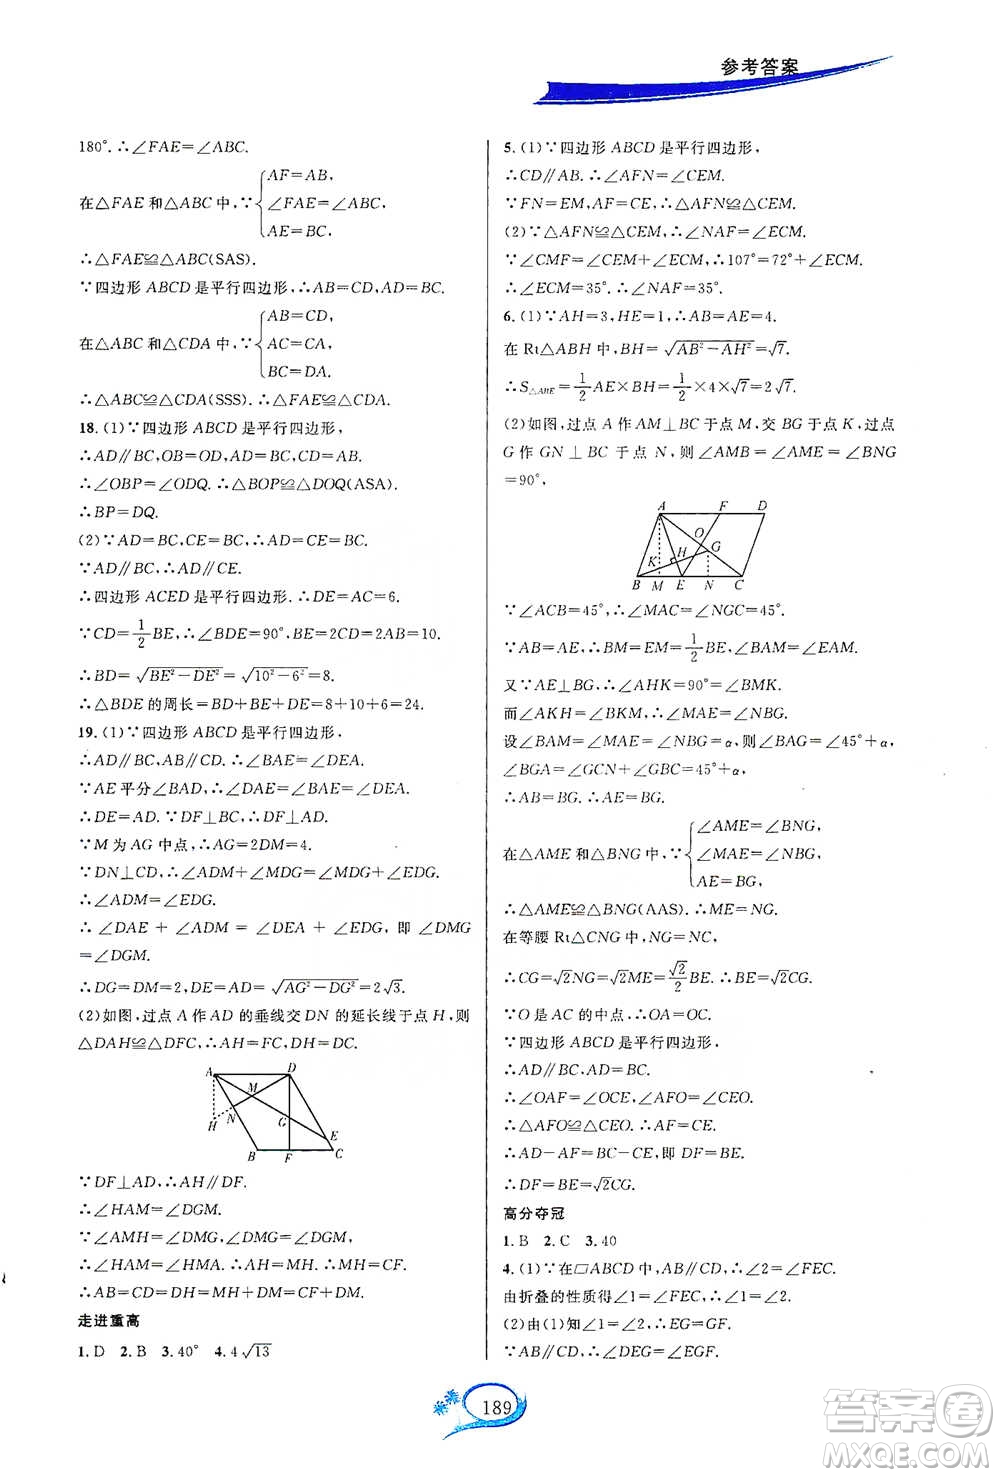 参考答案
180°.∴∠FAE=∠ABC.
在△FAE和△ABC中,∵{AF=AB,
∠FAE=∠ABC,
AE=BC,
∴△FAE≌△ABC(SAS).
∵四边形ABCD是平行四边形,∴AB=CD,AD=BC.
在△ABC和△CDA中,∵{AB=CD,
AC=CA,
BC=DA.
∴△ABC≌△CDA(SSS).∴△FAE≌△CDA.
18.(1)∵四边形ABCD是平行四边形,
∴AD∥BC,OB=OD,AD=BC,CD=AB.
∴∠OBP=∠ODQ.∴△BOP≌△DOQ(ASA).
∴BP=DQ.
(2)∵AD=BC,CE=BC,∴AD=CE.
∵AD∥BC,∴AD∥CE.
∴四边形ACED是平行四边形.∴DE=AC=6.
∵CD=1/2BE,∴∠BDE=90°,BE=2CD=2AB=10.
∴BD=√(BE²-DE²)=√(10²-6²)=8.
∴△BDE的周长=BD+BE+DE=8+10+6=24.
19.(1)∵四边形ABCD是平行四边形,
∴AD∥BC,AB∥CD.∴∠BAE=∠DEA.
∵AE平分∠BAD,∴∠DAE=∠BAE=∠DEA.
∴DE=AD.∵DF⊥BC,∴DF⊥AD.
∵M为AG中点,∴AG=2DM=4.
∵DN⊥CD,∴∠ADM+∠MDG=∠MDG+∠EDG.
∴∠ADM=∠EDG.
∴∠DAE+∠ADM=∠DEA+∠EDG,即∠DMG
=∠DGM.
∴DG=DM=2,DE=AD=√(AG²-DG²)=2√3.
(2)如图,过点A作AD的垂线交DN的延长线于点H,则
△DAH≌△DFC,∴AH=FC,DH=DC.
A D
M
H N G
E
B F C
∵DF⊥AD,∴AH∥DF.
∴∠HAM=∠DGM.
∵∠AMH=∠DMG,∠DMG=∠DGM,
∴∠HAM=∠HMA.∴AH=MH.∴MH=FC.
∴AB=CD=DH=MH+DM=FC+DM.
走进重高
1.D 2.B 3.40° 4.4√13
5.(1)∵四边形ABCD是平行四边形,
∴CD∥AB.∴∠AFN=∠CEM.
∵FN=EM,AF=CE,∴△AFN≌△CEM.
(2)∵△AFN≌△CEM,∴∠NAF=∠ECM.
∵∠CMF=∠CEM+∠ECM,∴107°=72°+∠ECM.
∴∠ECM=35°.∴∠NAF=35°.
6.(1)∵AH=3,HE=1,∴AB=AE=4.
在Rt△ABH中,BH=√(AB²-AH²)=√7.
∴S△ABE=1/2AE×BH=1/2×4×√7=2√7.
(2)如图,过点A作AM⊥BC于点M,交BG于点K,过点
G作GN⊥BC于点N,则∠AMB=∠AME=∠BNG
=90°,
A F D
O
K H G
B M E N C
∵∠ACB=45°,∴∠MAC=∠NGC=45°.
∵AB=AE,∴BM=EM=1/2BE,∠BAM=∠EAM.
又∵AE⊥BG,∴∠AHK=90°=∠BMK.
而∠AKH=∠BKM,∴∠MAE=∠NBG.
设∠BAM=∠MAE=∠NBG=α,则∠BAG=45°+α,
∠BGA=∠GCN+∠GBC=45°+α.
∴AB=BG.∴AE=BG.
在△AME和△BNG中,∵{∠AME=∠BNG,
∠MAE=∠NBG,
AE=BG,
∴△AME≌△BNG(AAS).∴ME=NG.
在等腰Rt△CNG中,NG=NC,
∴CG=√2NG=√2ME=√2/2BE.∴BE=√2CG.
∵O是AC的中点,∴OA=OC.
∵四边形ABCD是平行四边形,
∴AD∥BC,AD=BC.
∴∠OAF=∠OCE,∠AFO=∠CEO.
∴△AFO≌△CEO.∴AF=CE.
∴AD-AF=BC-CE,即DF=BE.
∴DF=BE=√2CG.
高分夺冠
1.B 2.C 3.40
4.(1)∵在▱ABCD中,AB∥CD,∴∠2=∠FEC.
由折叠的性质得∠1=∠FEC,∴∠1=∠2.
(2)由(1)知∠1=∠2,∴EG=GF.
∵AB∥CD,∴∠DEG=∠EGF.
189
答案圈
MXQE.COM